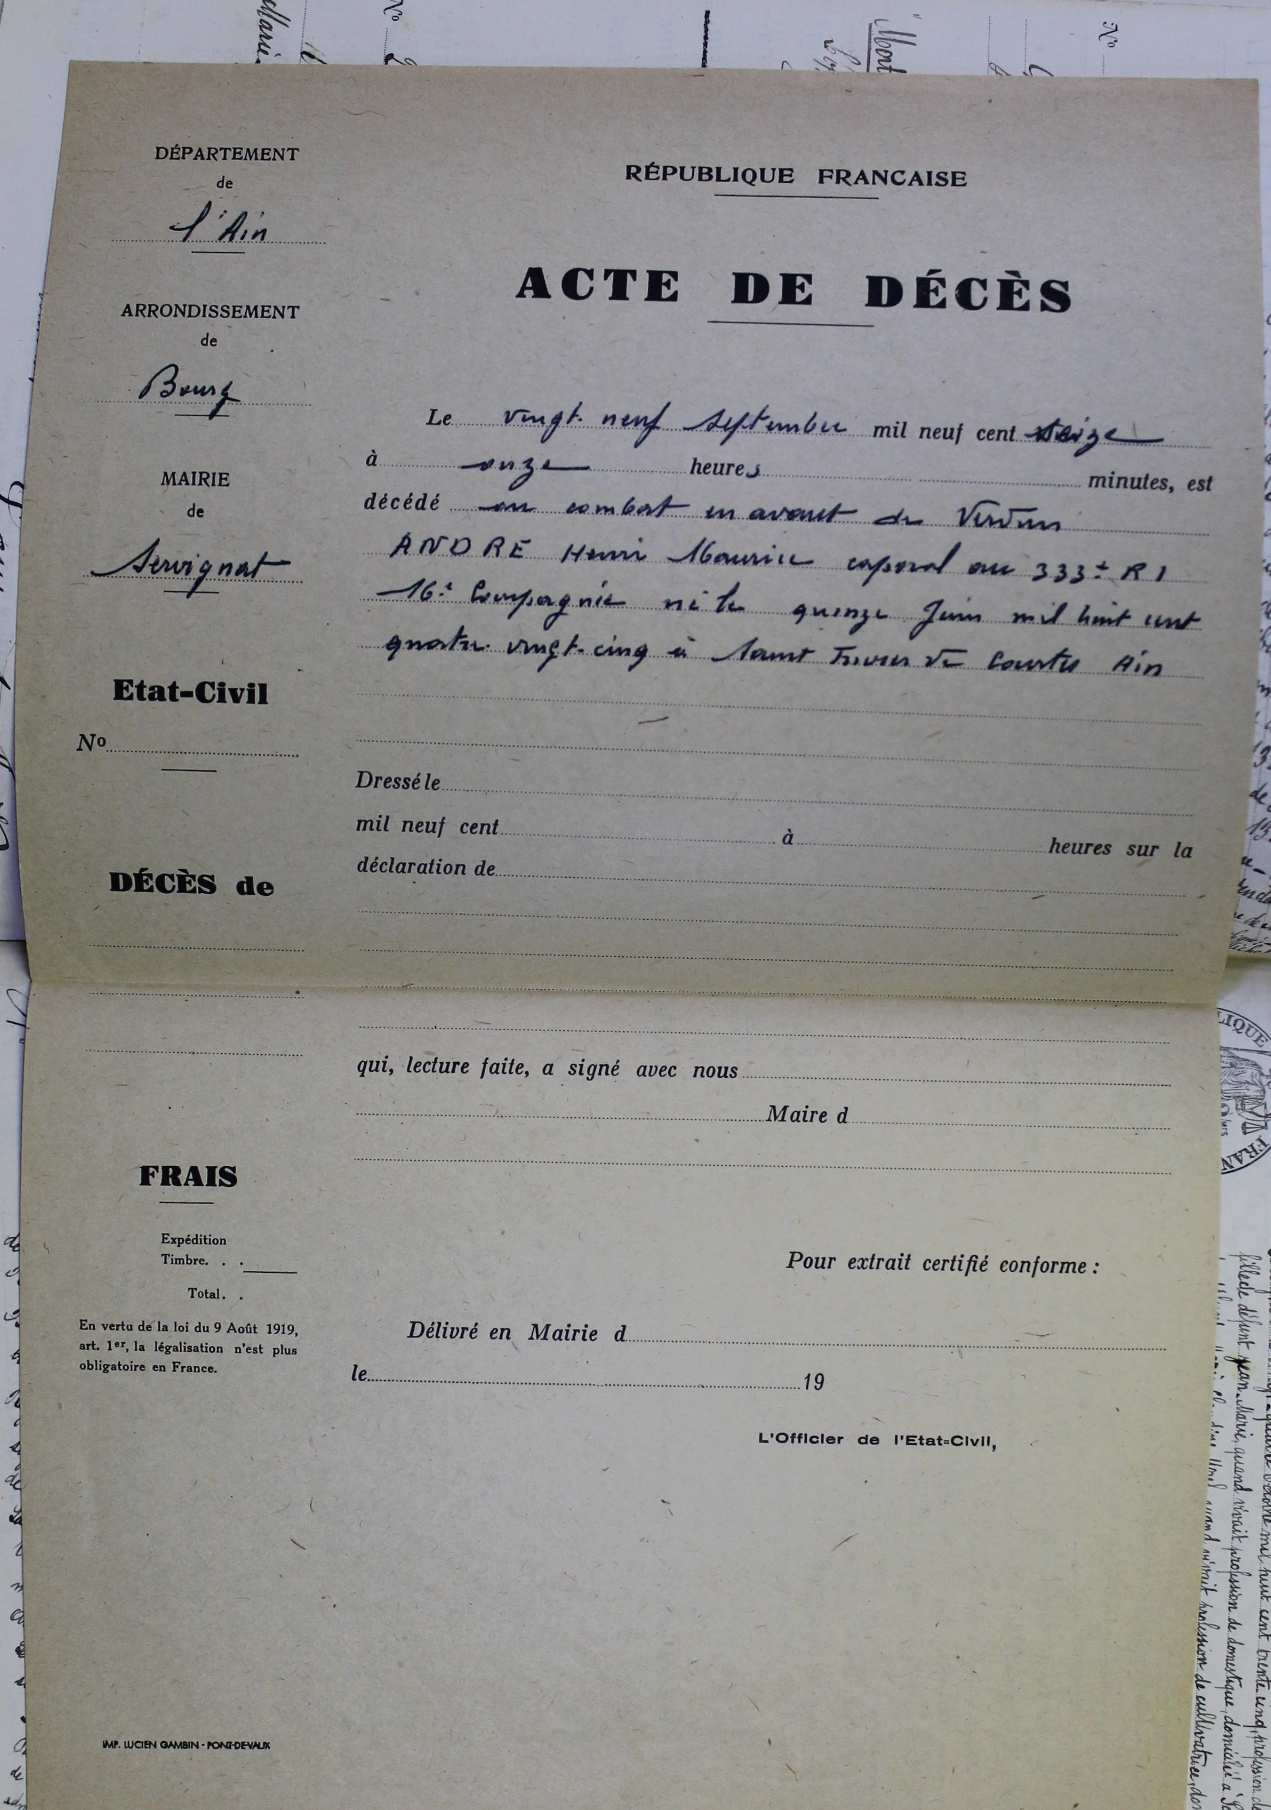 DÉPARTEMENT
de
l'Ain
ARRONDISSEMENT
de
Bourg
MAIRIE
de
Servignat
Etat-Civil
No
DÉCÈS de
FRAIS
Expédition
Timbre. . .
Total. .
En vertu de la loi du 9 Août 1919,
art. 1er, la légalisation n'est plus
obligatoire en France.
IMP. LUCIEN GAMBIN - PONT-DE-VAUX
RÉPUBLIQUE FRANCAISE
ACTE DE DÉCÈS
Le vingt-neuf septembre mil neuf cent seize
à onze heures minutes, est
décédé au combat en avant de Verdun
ANDRE Henri Maurice caporal au 333e RI
16e Compagnie né le quinze Juin mil huit cent
quatre-vingt-cinq à Saint Trivier de Courtes Ain
Dressé le
mil neuf cent à heures sur la
déclaration de
qui, lecture faite, a signé avec nous
Maire d
Pour extrait certifié conforme :
Délivré en Mairie d
le 19
L'Officier de l'Etat-Civil,